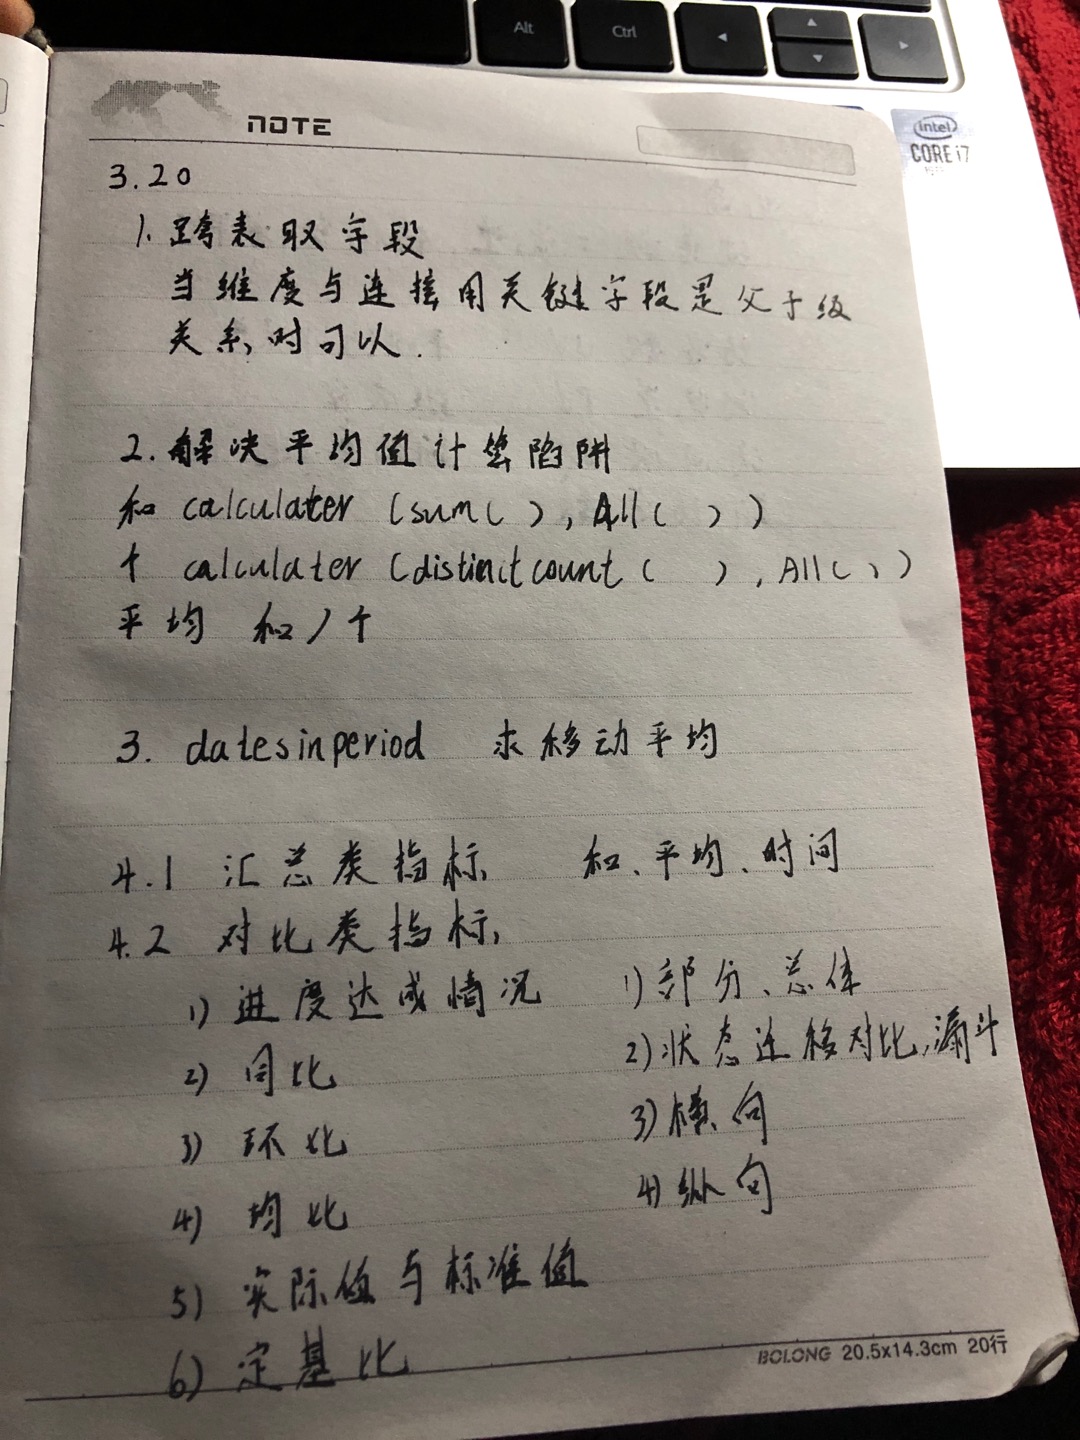 Alt
Ctrl
intel
CORE i7
NOTE
3.20
1. 跨表取字段
当维度与连接用关键字段是父子级
关系时可以.
2. 解决平均值计算陷阱
和 calculater (sum( ), All( ))
个 calculater (distinctcount( ), All( ))
平均 和/个
3. datesinperiod 求移动平均
4.1 汇总类指标 和、平均、时间
4.2 对比类指标
1) 进度达成情况 1) 部分、总体
2) 同比 2) 状态迁移对比,漏斗
3) 环比 3) 横向
4) 均比 4) 纵向
5) 实际值与标准值
6) 定基比
BOLONG 20.5x14.3cm 20行